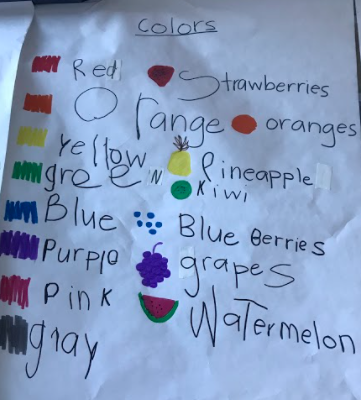 Colors
Red Strawberries
Orange oranges
Yellow Pineapple
greeN Kiwi
Blue Blue Berries
Purple grapes
PinK Watermelon
gray